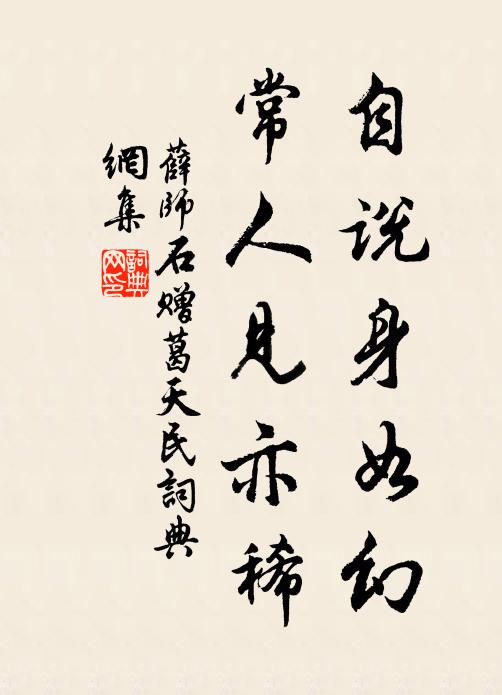 自说身如幻
常人見亦稀
薛師石赠葛天民詞典
網集
詞典网印